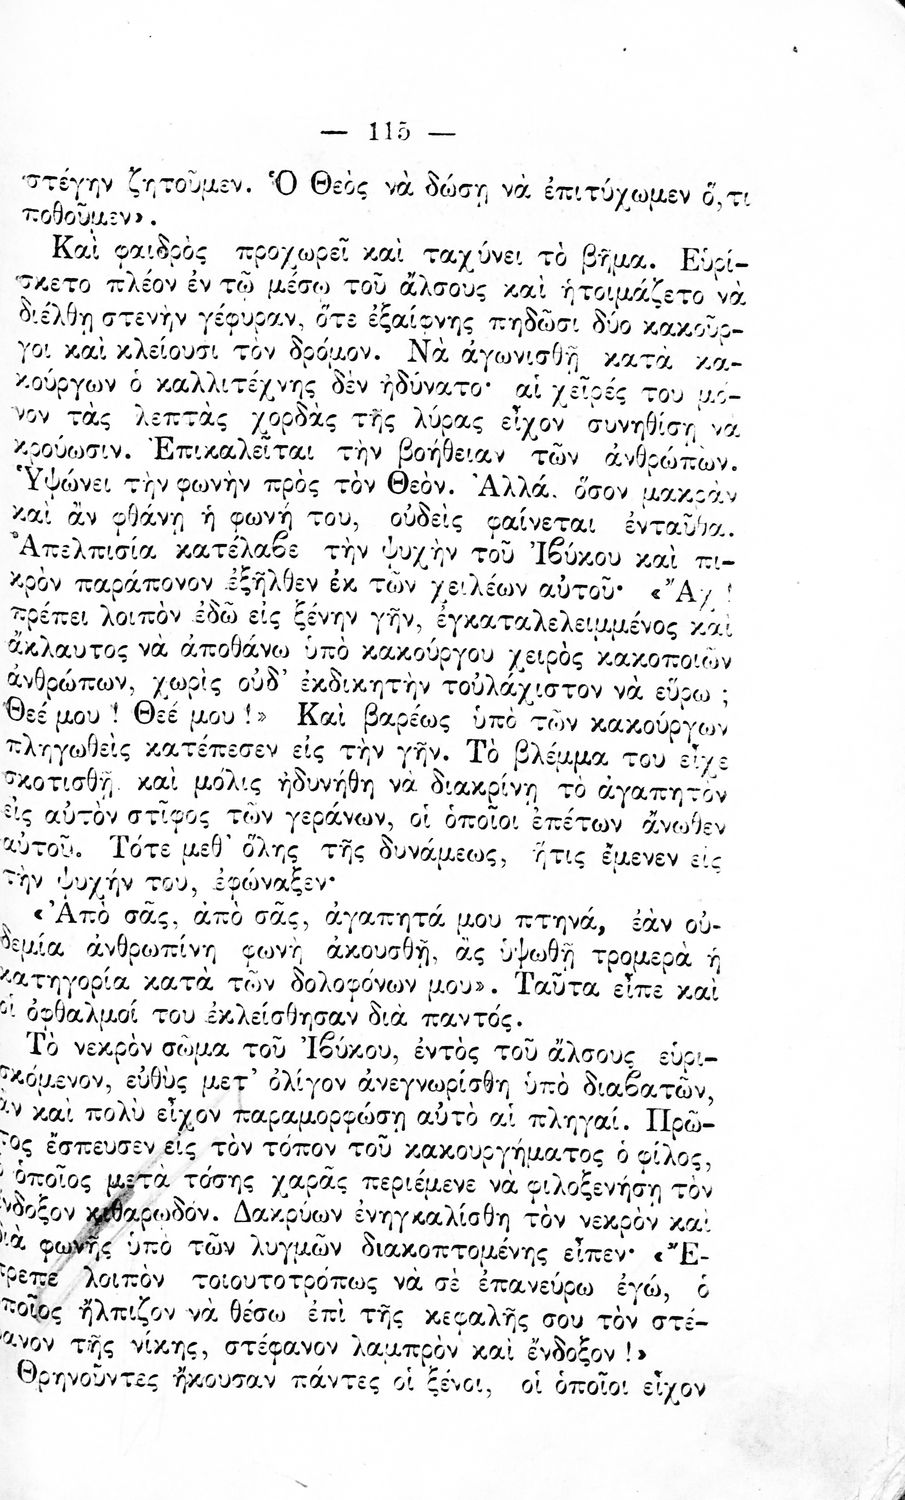 — 115 —
στέγην ζητοῦμεν. Ὁ Θεὸς νὰ δώσῃ νὰ ἐπιτύχωμεν ὅ,τι
ποθοῦμεν».
Καὶ φαιδρὸς προχωρεῖ καὶ ταχύνει τὸ βῆμα. Εὑρί-
σκετο πλέον ἐν τῷ μέσῳ τοῦ ἄλσους καὶ ἡτοιμάζετο νὰ
διέλθῃ στενὴν γέφυραν, ὅτε ἐξαίφνης πηδῶσι δύο κακοῦρ-
γοι καὶ κλείουσι τὸν δρόμον. Νὰ ἀγωνισθῇ κατὰ κα-
κούργων ὁ καλλιτέχνης δὲν ἠδύνατο· αἱ χεῖρές του μό-
νον τὰς λεπτὰς χορδὰς τῆς λύρας εἶχον συνηθίσῃ να
κρούωσιν. Ἐπικαλεῖται τὴν βοήθειαν τῶν ἀνθρώπων.
Ὑψώνει τὴν φωνὴν πρὸς τὸν Θεόν. Ἀλλά. ὅσον μακρὰν
καὶ ἂν φθάνῃ ἡ φωνή του, οὐδεὶς φαίνεται ἐνταῦθα.
Ἀπελπισία κατέλαβε τὴν ψυχὴν τοῦ Ἰβύκου καὶ πι-
κρὸν παράπονον ἐξῆλθεν ἐκ τῶν χειλέων αὐτοῦ· «Ἄχ !
πρέπει λοιπὸν ἐδῶ εἰς ξένην γῆν, ἐγκαταλελειμμένος καὶ
ἄκλαυτος νὰ ἀποθάνω ὑπὸ κακούργου χειρὸς κακοποιῶν
ἀνθρώπων, χωρὶς οὐδ’ ἐκδικητὴν τοὐλάχιστον νὰ εὕρω ;
Θεέ μου ! Θεέ μου !» Καὶ βαρέως ὑπὸ τῶν κακούργων
πληγωθεὶς κατέπεσεν εἰς τὴν γῆν. Τὸ βλέμμα του εἶχε
σκοτισθῇ. καὶ μόλις ἠδυνήθη νὰ διακρίνῃ τὸ ἀγαπητὸν
εἰς αὐτὸν στῖφος τῶν γεράνων, οἱ ὁποῖοι ἐπέτων ἄνωθεν
αὐτοῦ. Τότε μεθ’ ὅλης τῆς δυνάμεως, ἥτις ἔμενεν εἰς
τὴν ψυχήν του, ἐφώναξεν·
«Ἀπὸ σᾶς, ἀπὸ σᾶς, ἀγαπητά μου πτηνά, ἐὰν οὐ-
δεμία ἀνθρωπίνη φωνὴ ἀκουσθῇ, ἂς ὑψωθῇ τρομερὰ ἡ
κατηγορία κατὰ τῶν δολοφόνων μου». Ταῦτα εἶπε καὶ
οἱ ὀφθαλμοί του ἐκλείσθησαν διὰ παντός.
Τὸ νεκρὸν σῶμα τοῦ Ἰβύκου, ἐντὸς τοῦ ἄλσους εὑρι-
σκόμενον, εὐθὺς μετ’ ὀλίγον ἀνεγνωρίσθη ὑπὸ διαβατῶν,
ἂν καὶ πολὺ εἶχον παραμορφώσῃ αὐτὸ αἱ πληγαί. Πρῶ-
τος ἔσπευσεν εἰς τὸν τόπον τοῦ κακουργήματος ὁ φίλος,
ὁποῖος μετὰ τόσης χαρᾶς περιέμενε νὰ φιλοξενήσῃ τὸν
ἔνδοξον κιθαρῳδόν. Δακρύων ἐνηγκαλίσθη τὸν νεκρὸν καὶ
διὰ φωνῆς ὑπὸ τῶν λυγμῶν διακοπτομένης εἶπεν· «Ἔ-
πρεπε λοιπὸν τοιουτοτρόπως νὰ σὲ ἐπανεύρω ἐγώ, ὁ
ὁποῖος ἤλπιζον νὰ θέσω ἐπὶ τῆς κεφαλῆς σου τὸν στέ-
φανον τῆς νίκης, στέφανον λαμπρὸν καὶ ἔνδοξον !»
Θρηνοῦντες ἤκουσαν πάντες οἱ ξένοι, οἱ ὁποῖοι εἶχον